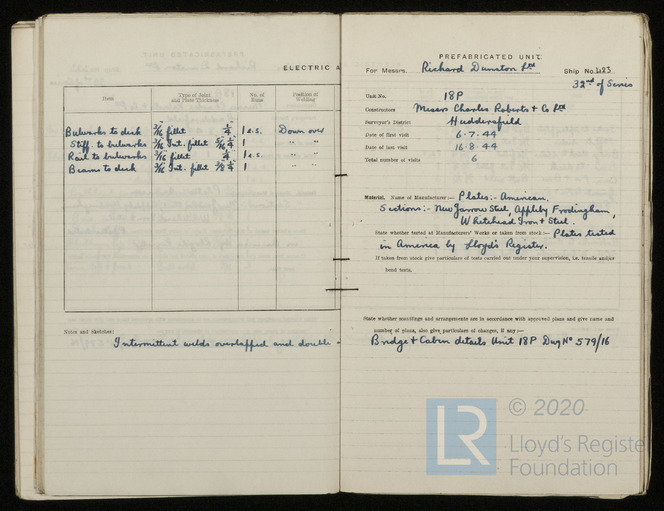 ELECTRIC A
Item
Type of Joint and Plate Thickness
No. of Runs
Position of Welding
Bulwarks to deck 3/16 fillet 1/4" 1 e.s. Down over
Stiff. to bulwarks 3/16 Int. fillet 5/16 1/4 1 " "
Rail to bulwarks 3/16 fillet 1/4 1 e.s. " "
Beams to deck 3/16 Int. fillet 3/8 1/4 1 " "
Notes and Sketches:
Intermittent welds overlapped and double
PREFABRICATED UNIT
For Messrs. Richard Dunston Ltd Ship No. 423
32nd of Series
Unit No. 18P
Constructors Messrs Charles Roberts & Co Ltd
Surveyor's District Huddersfield
Date of first visit 6.7.44
Date of last visit 16.8.44
Total number of visits 6
Material. Name of Manufacturer :— Plates:- American.
Sections:- New Jarrow Steel, Appleby Frodingham,
Whitehead Iron & Steel.
State whether tested at Manufacturers' Works or taken from stock :— Plates tested
in America by Lloyd's Register.
If taken from stock give particulars of tests carried out under your supervision, i.e. tensile and/or
bend tests.
State whether scantlings and arrangements are in accordance with approved plans and give name and
number of plans, also give particulars of changes, if any :—
Bridge & Cabin details Unit 18P Dwg No 579/16
LR
© 2020
Lloyd's Register
Foundation